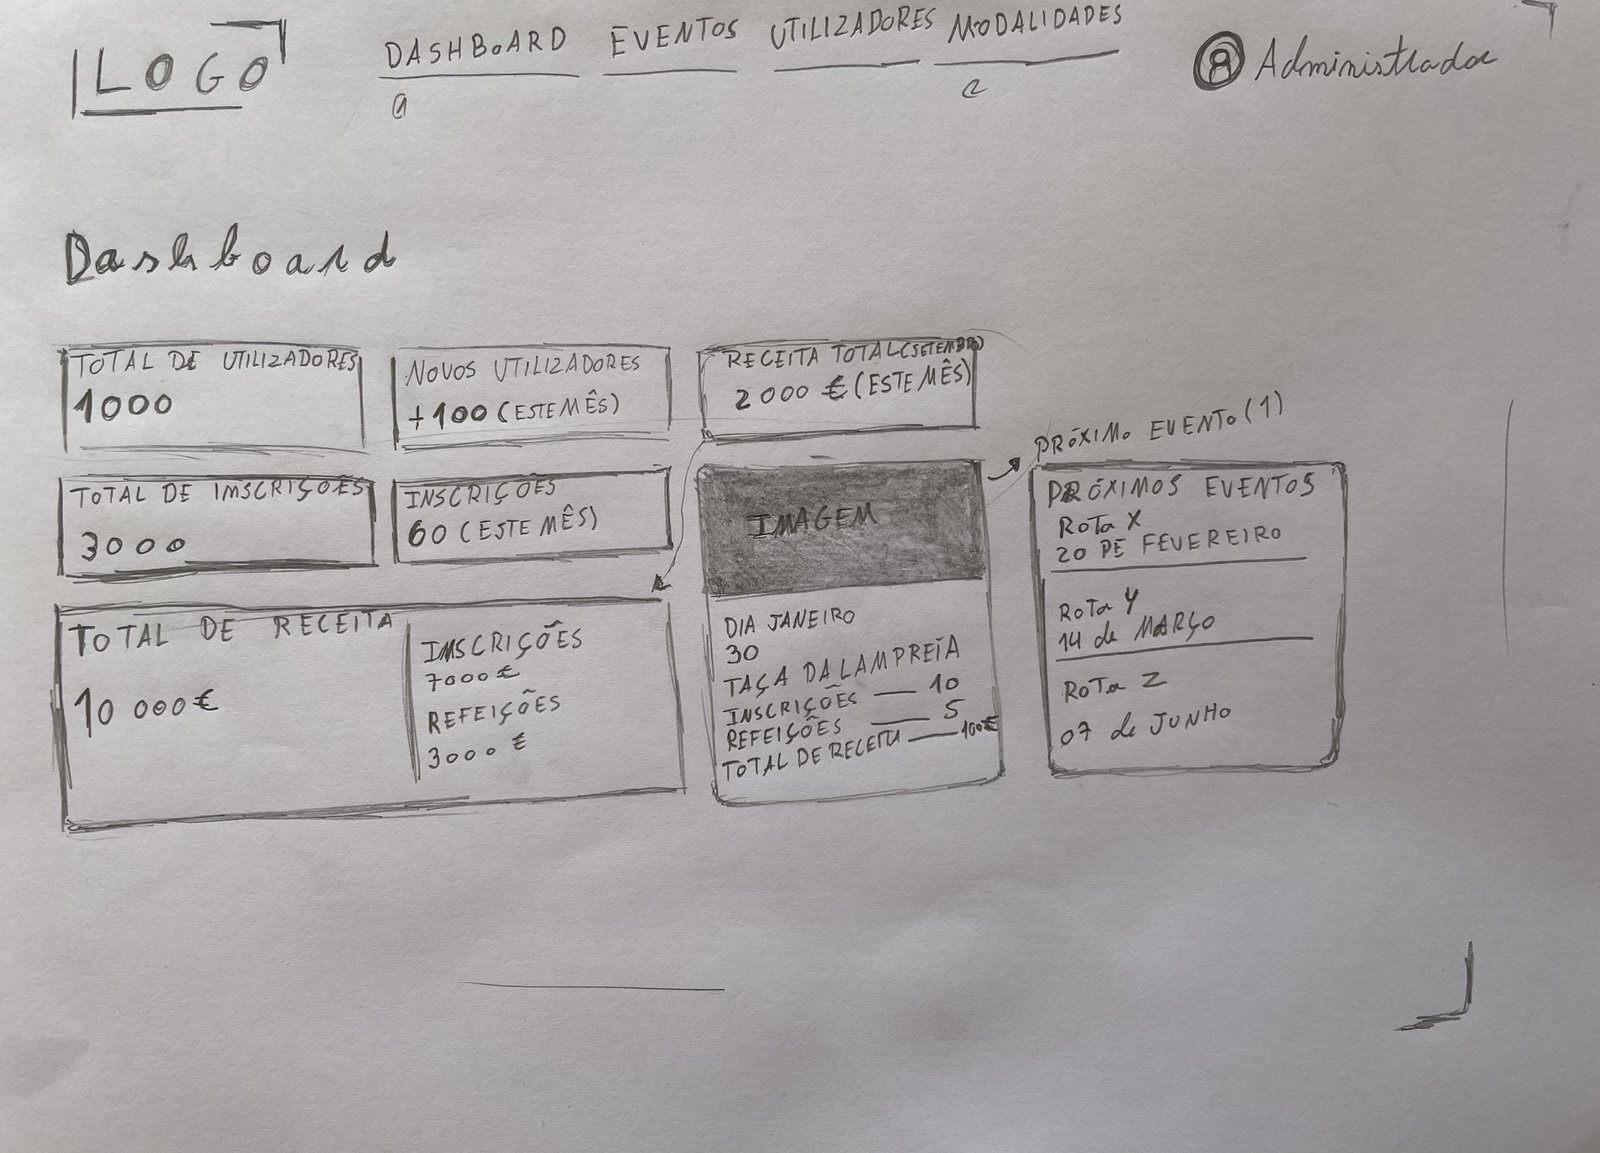 LOGO
DASHBOARD EVENTOS UTILIZADORES MODALIDADES
Administrador
Dashboard
TOTAL DE UTILIZADORES
1000
NOVOS UTILIZADORES
+100 (ESTE MÊS)
RECEITA TOTAL (SETEMBRO)
2000 € (ESTE MÊS)
TOTAL DE INSCRIÇÕES
3000
INSCRIÇÕES
60 (ESTE MÊS)
TOTAL DE RECEITA
10 000 €
INSCRIÇÕES
7000 €
REFEIÇÕES
3000 €
IMAGEM
DIA JANEIRO
30
TAÇA DA LAMPREIA
INSCRIÇÕES — 10
REFEIÇÕES — 5
TOTAL DE RECEITA — 100€
PRÓXIMO EVENTO (1)
PRÓXIMOS EVENTOS
ROTA X
20 DE FEVEREIRO
ROTA Y
14 de MARÇO
ROTA Z
07 de JUNHO